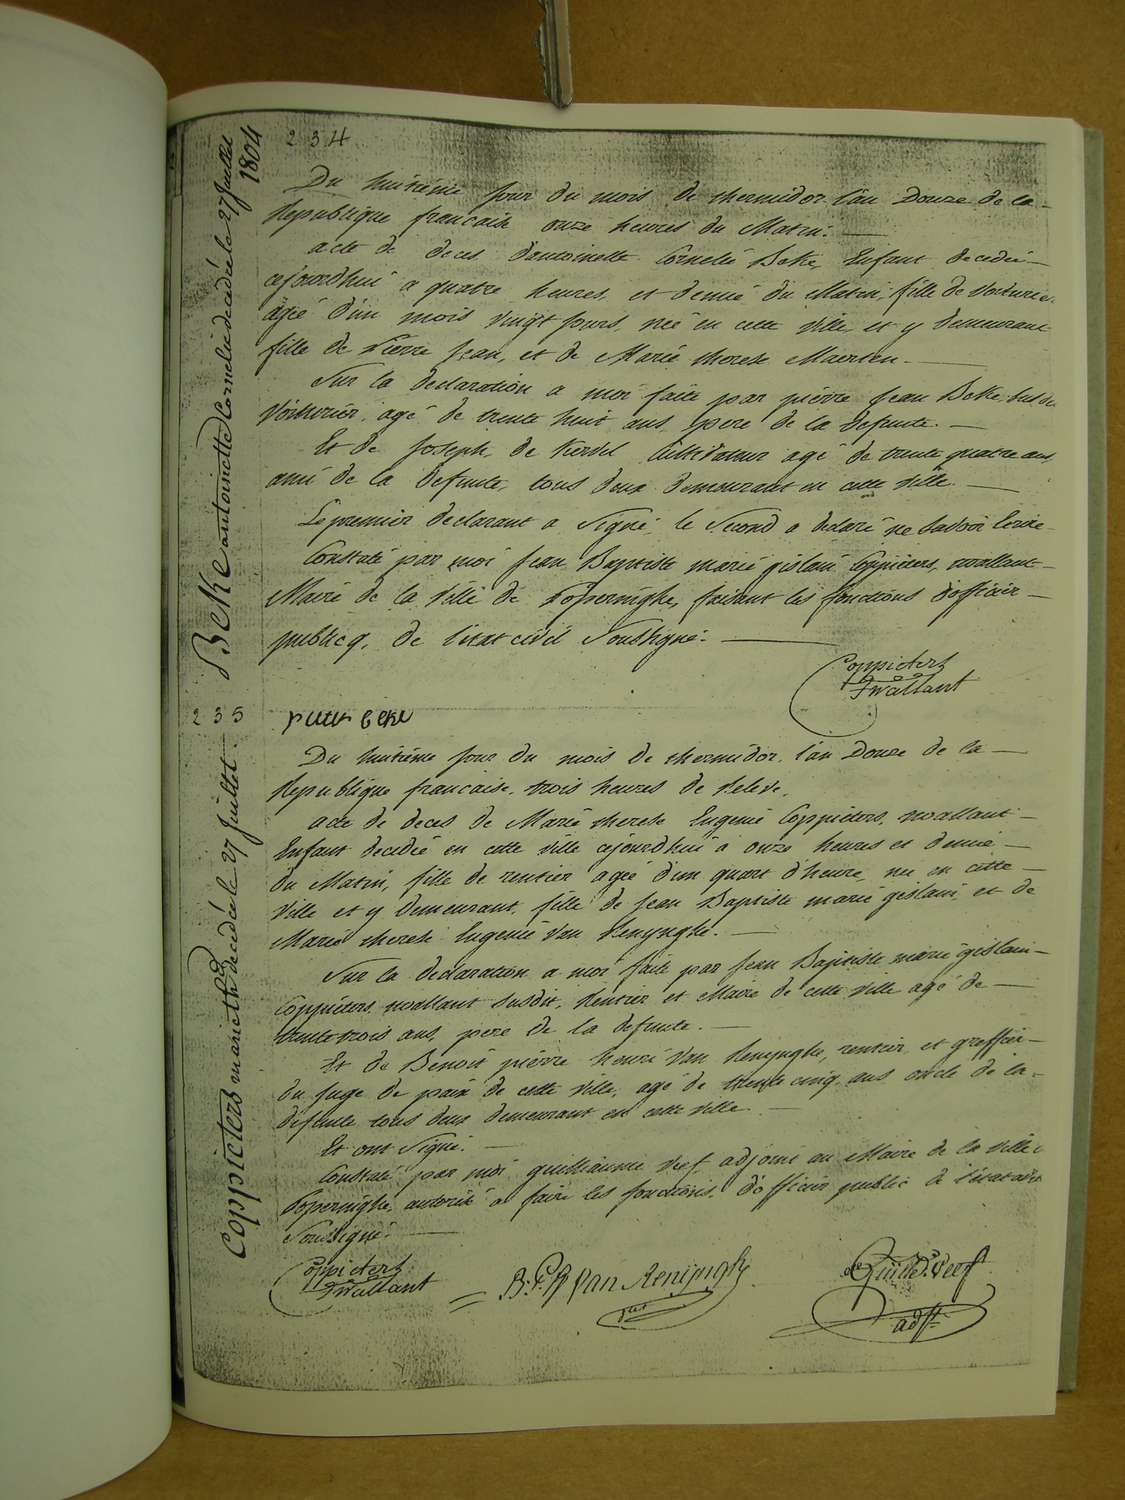 234
Beke antoinette Cornelie decedée le 27 Juillet
1804
Du huitiéme jour du mois de thermidor l'an Douze de la
Republique francaise onze heures du Matin.
acte de deces d'antoinette Cornelié Beke, Enfant decedeé
cejourdhui a quatre heures et demié du Matin, fille de Voiturier
agié d'un mois vingt jours neé en cette ville et y demeurant
fille de Pierre Jean, et de Marié therese Maerten.
Sur la declaration a moi faite par piérre Jean Beke susdit
Voiturier, agé de trente huit ans pere de la defunte.
Et de Joseph de Kervel Cultivateur agé de trente quatre ans
ami de la defunte, tous deux demeurant en cette ville.
Le premier declarant a Signé le Second a declaré ne Savoir Ecrire
Constaté par moi Jean Baptiste marié gislain Coppieters, wallant
Mairé de la Villé de Poperinghe, faisant les fonctions d'officiér
publicq, de l'etat civil Soussigné.
Coppieters
Twallant
235
pieter beke
Coppieters marie th decedée le 27 Juillet
Du huitiéme jour du mois de thermidor l'an Douze de la
Republique francaise, trois heures de Relevé.
acte de deces de Marié therese Eugenié Coppieters, wallant
Enfant decedeé en cette ville cejourdhui a onze heures et demié
du Matin, fille de rentier ageé d'un quart d'heure neé en cette
Ville et y demeurant, fille de Jean Baptiste marié gislain, et de
Marié therese Eugenié Van Renynghe.
Sur la declaration a moi faite par Jean Baptiste marie gislain
Coppieters, wallant susdit, Rentier et Maire de cette ville agé de
trente trois ans, pere de la defunte.
Et de Benoit piérre henri Van Renynghe, rentier, et greffier
du Juge de paix de cette ville, agé de trente cinq ans oncle de la
defunte tous deux demeurant en cette ville.
Et ont Signé.
Constaté par moi guilliaume Veef, adjoint au Maire de la ville
Poperinghe autorisé a faire les fonctions d'officier public à l'etat civil
Soussigné.
Coppieters
Twallant
B. P. H Van Renynghe
Guill. Veef
adjt